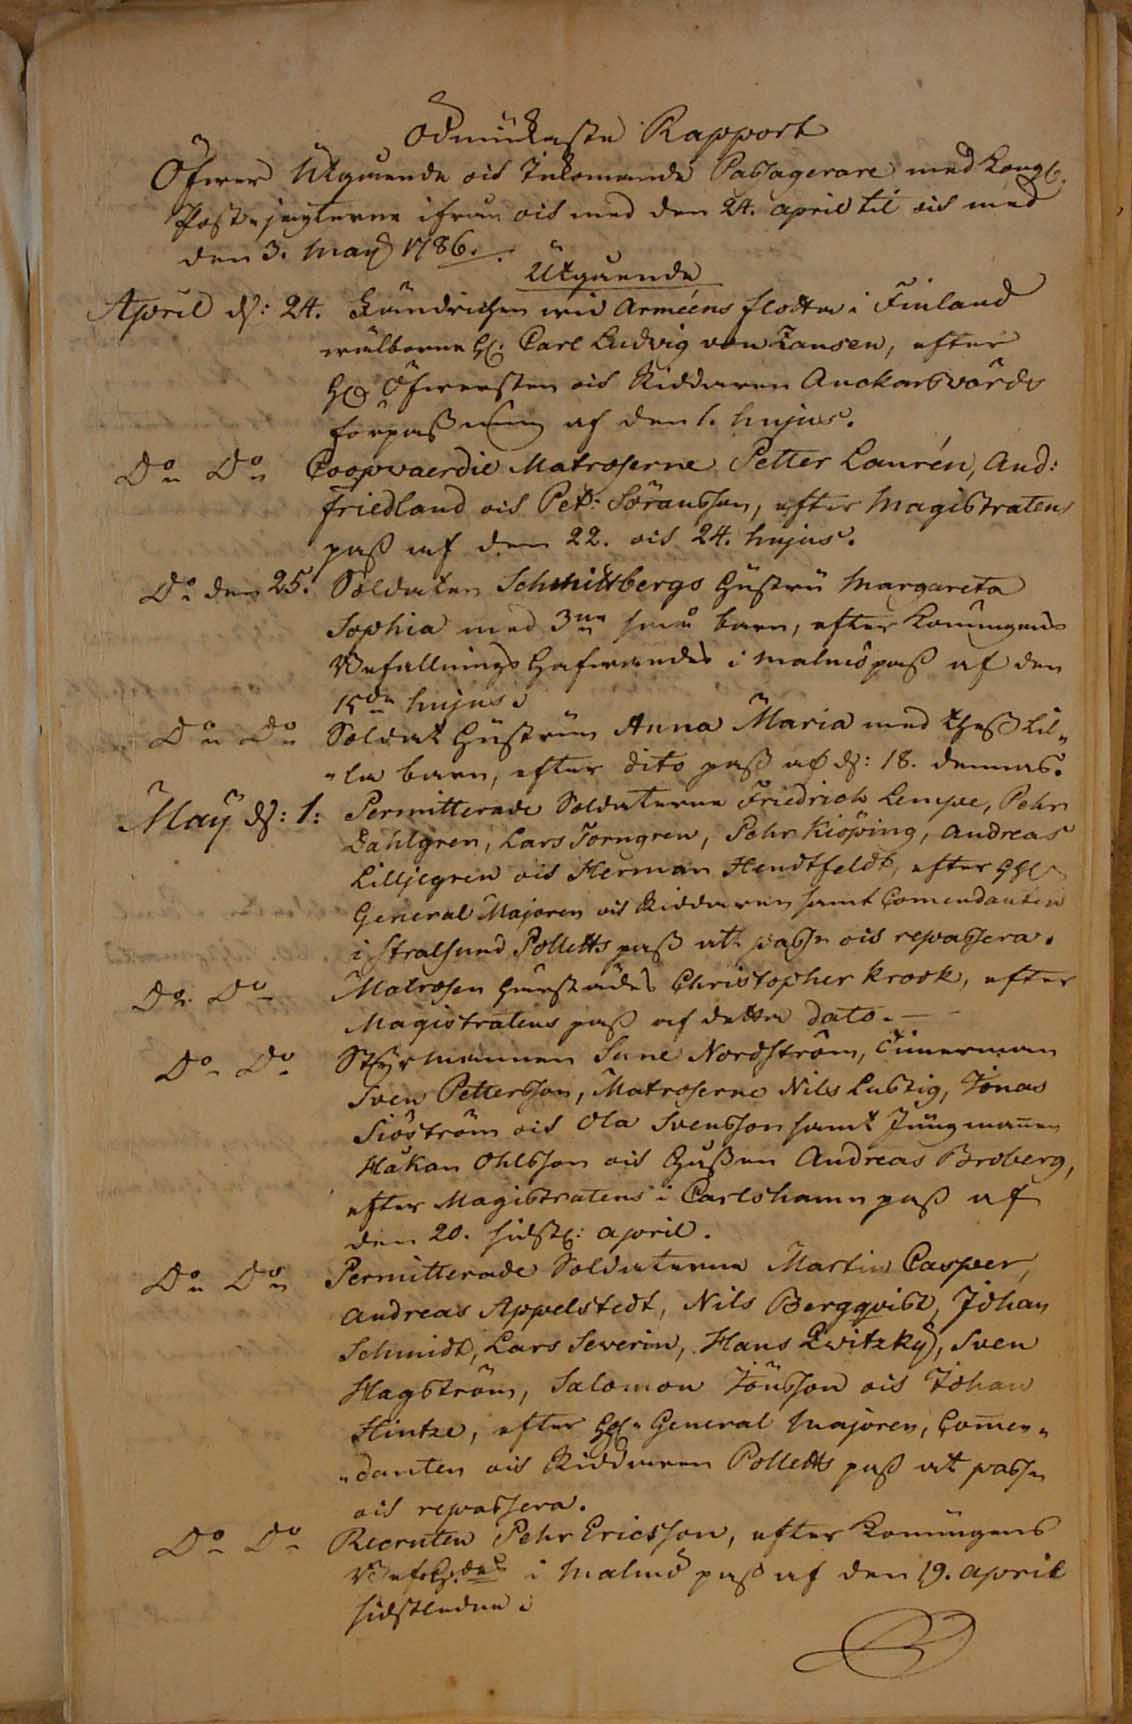 Ödmiukaste Rapport
Öfwer Utgående och Inkomande Passagerare med Kongl.
Post-jagterne ifrån och med den 24. april til och med
den 3. may 1786.
Utgående
April d: 24. Fändrichen wid Arméens flotta i Finland
wälborne H: Carl Ludvig von Hansen, efter
H: Öfwersten och Riddaren Anckarsvärds
förpassning af den 1. hujus.
Do Do Coopvaerdie Matroserne Petter Laurén, And:
Friedland och Pet: Söransson, efter Magistratens
pass af den 22. och 24. hujus.
Do den 25. Soldaten Schmittbergs Hustru Margareta
Sophia med 3ne små barn, efter Konungens
Befallnings Hafwandes i Malmö pass af den
15de hujus.
Do Do Soldat Hustrun Anna Maria med thess lil-
-la barn, efter dito pass af d: 18. dennes.
May d: 1: Permitterade Soldaterne Friedrich Lempe, Pehr
Dahlgren, Lars Torngren, Pehr Kiöping, Andreas
Lilljegren och Herman Hendtfeldt, efter
General Majoren och Riddaren samt Comendanten
i Stralsund Polletts pass at passe och repassera.
Do Do Matrosen Christopher Krook, efter
Magistratens pass af detta dato.
Do Do Styrmannen Sune Nordström, Timerman
Sven Pettersson, Matroserne Nils Lustig, Jonas
Siöström och Ola Svensson samt Jungmannen
Håkan Ohlsson och Andreas Broberg,
efter Magistratens i Carlshamn pass af
den 20. sidstl: april.
Do Do Permitterade Soldaterne Martin Casper,
Andreas Appelstedt, Nils Bergqvist, Johan
Schmidt, Lars Severin, Hans Qvitzky, Sven
Hagström, Salomon Jönsson och Johan
Hintze, efter General Majoren, Comen-
-danten och Riddaren Polletts pass at passe
och repassera.
Do Do Recruten Pehr Ericsson, efter Konungens
i Malmö pass af den 19. april
sidstledne.